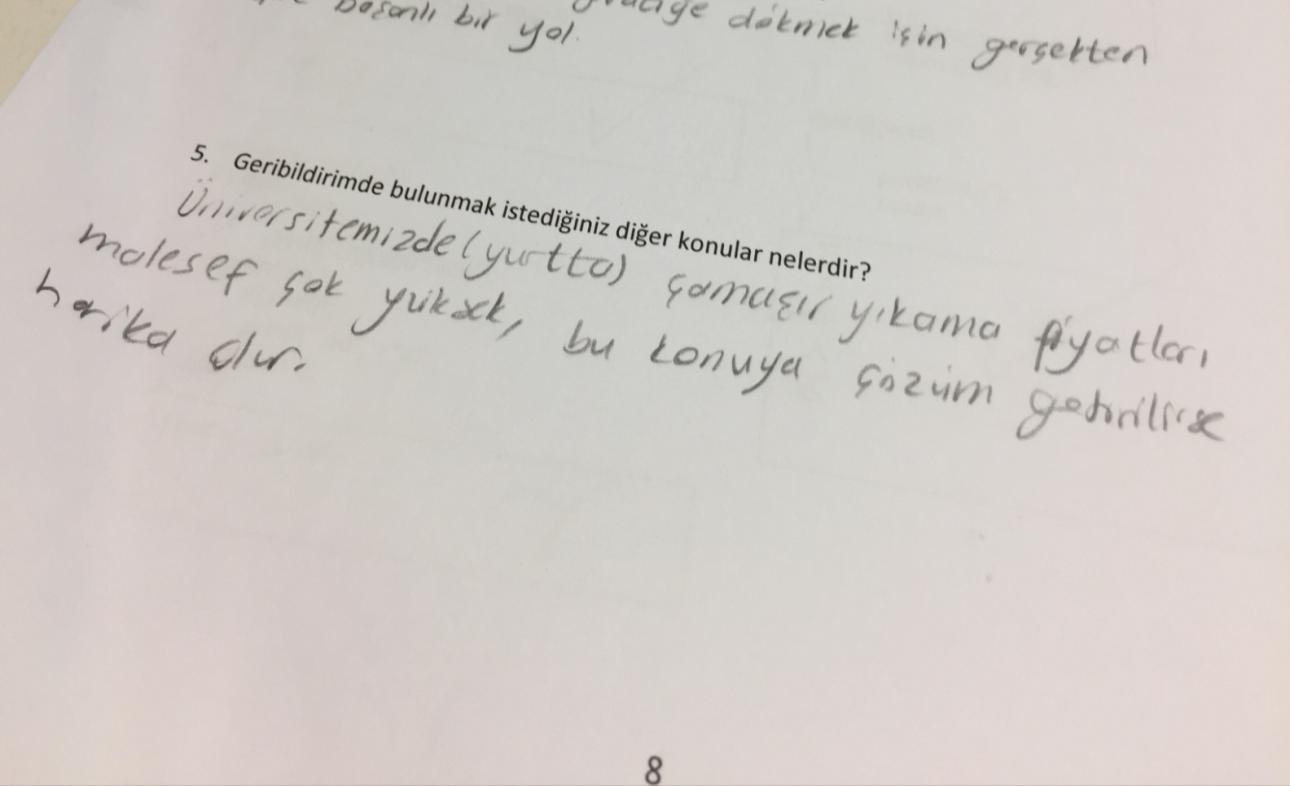 dökmek için gerçekten
başarılı bir yol.
5. Geribildirimde bulunmak istediğiniz diğer konular nelerdir?
Üniversitemizde (yurtta) çamaşır yıkama fiyatları
malesef çok yüksek, bu konuya çözüm getirilirse
harika olur.
8